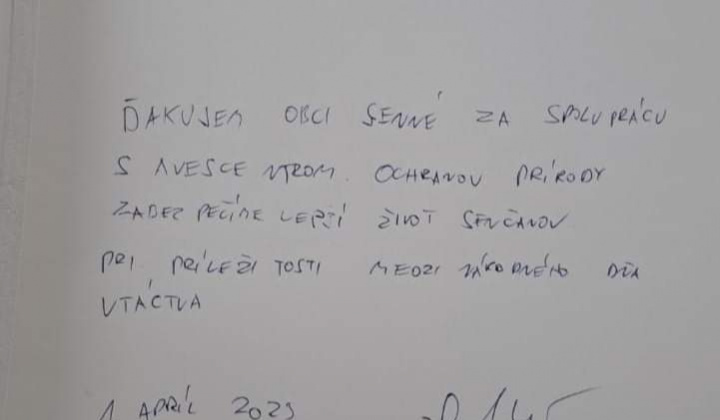 ĎAKUJEM OBCI SENNÉ ZA SPOLUPRÁCU
S AVESCENTROM. OCHRANOU PRÍRODY
ZABEZPEČÍME LEPŠÍ ŽIVOT SENČANOV
PRI PRÍLEŽITOSTI MEDZINÁRODNÉHO DŇA
VTÁCTVA
1 APRÍL 2023